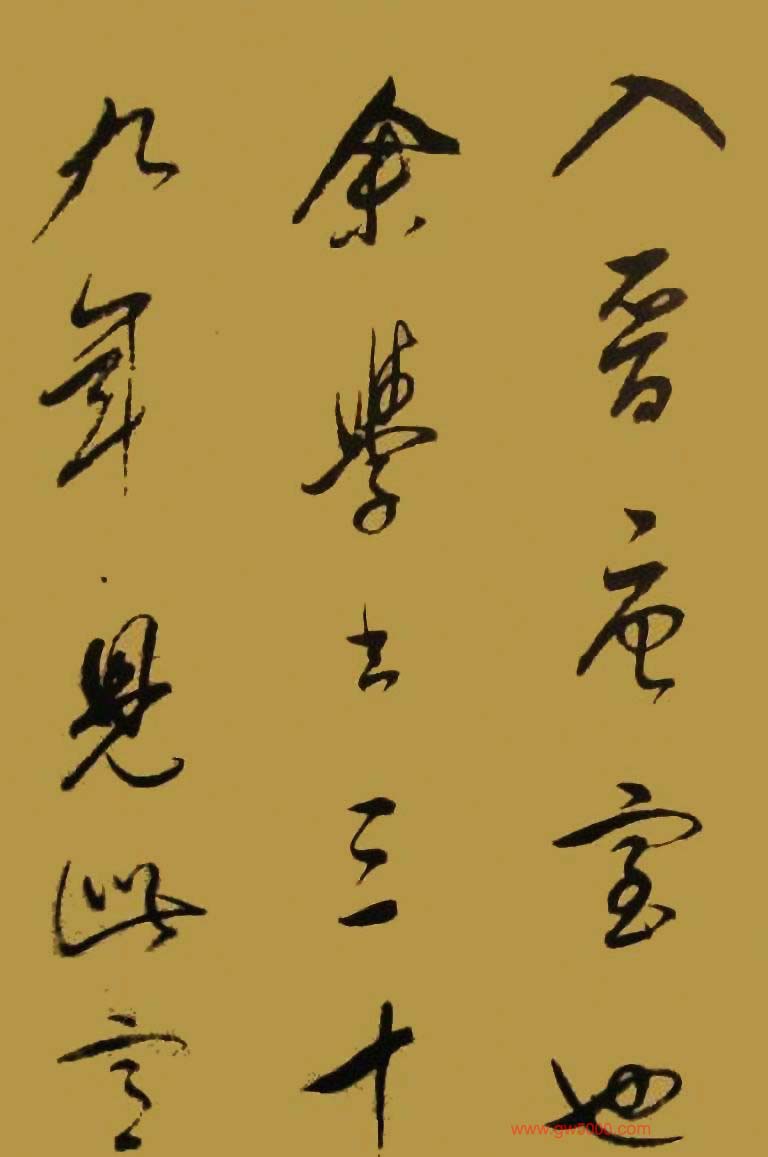 入晉唐室也
余學書三十
九年見此
www.gw5000.com